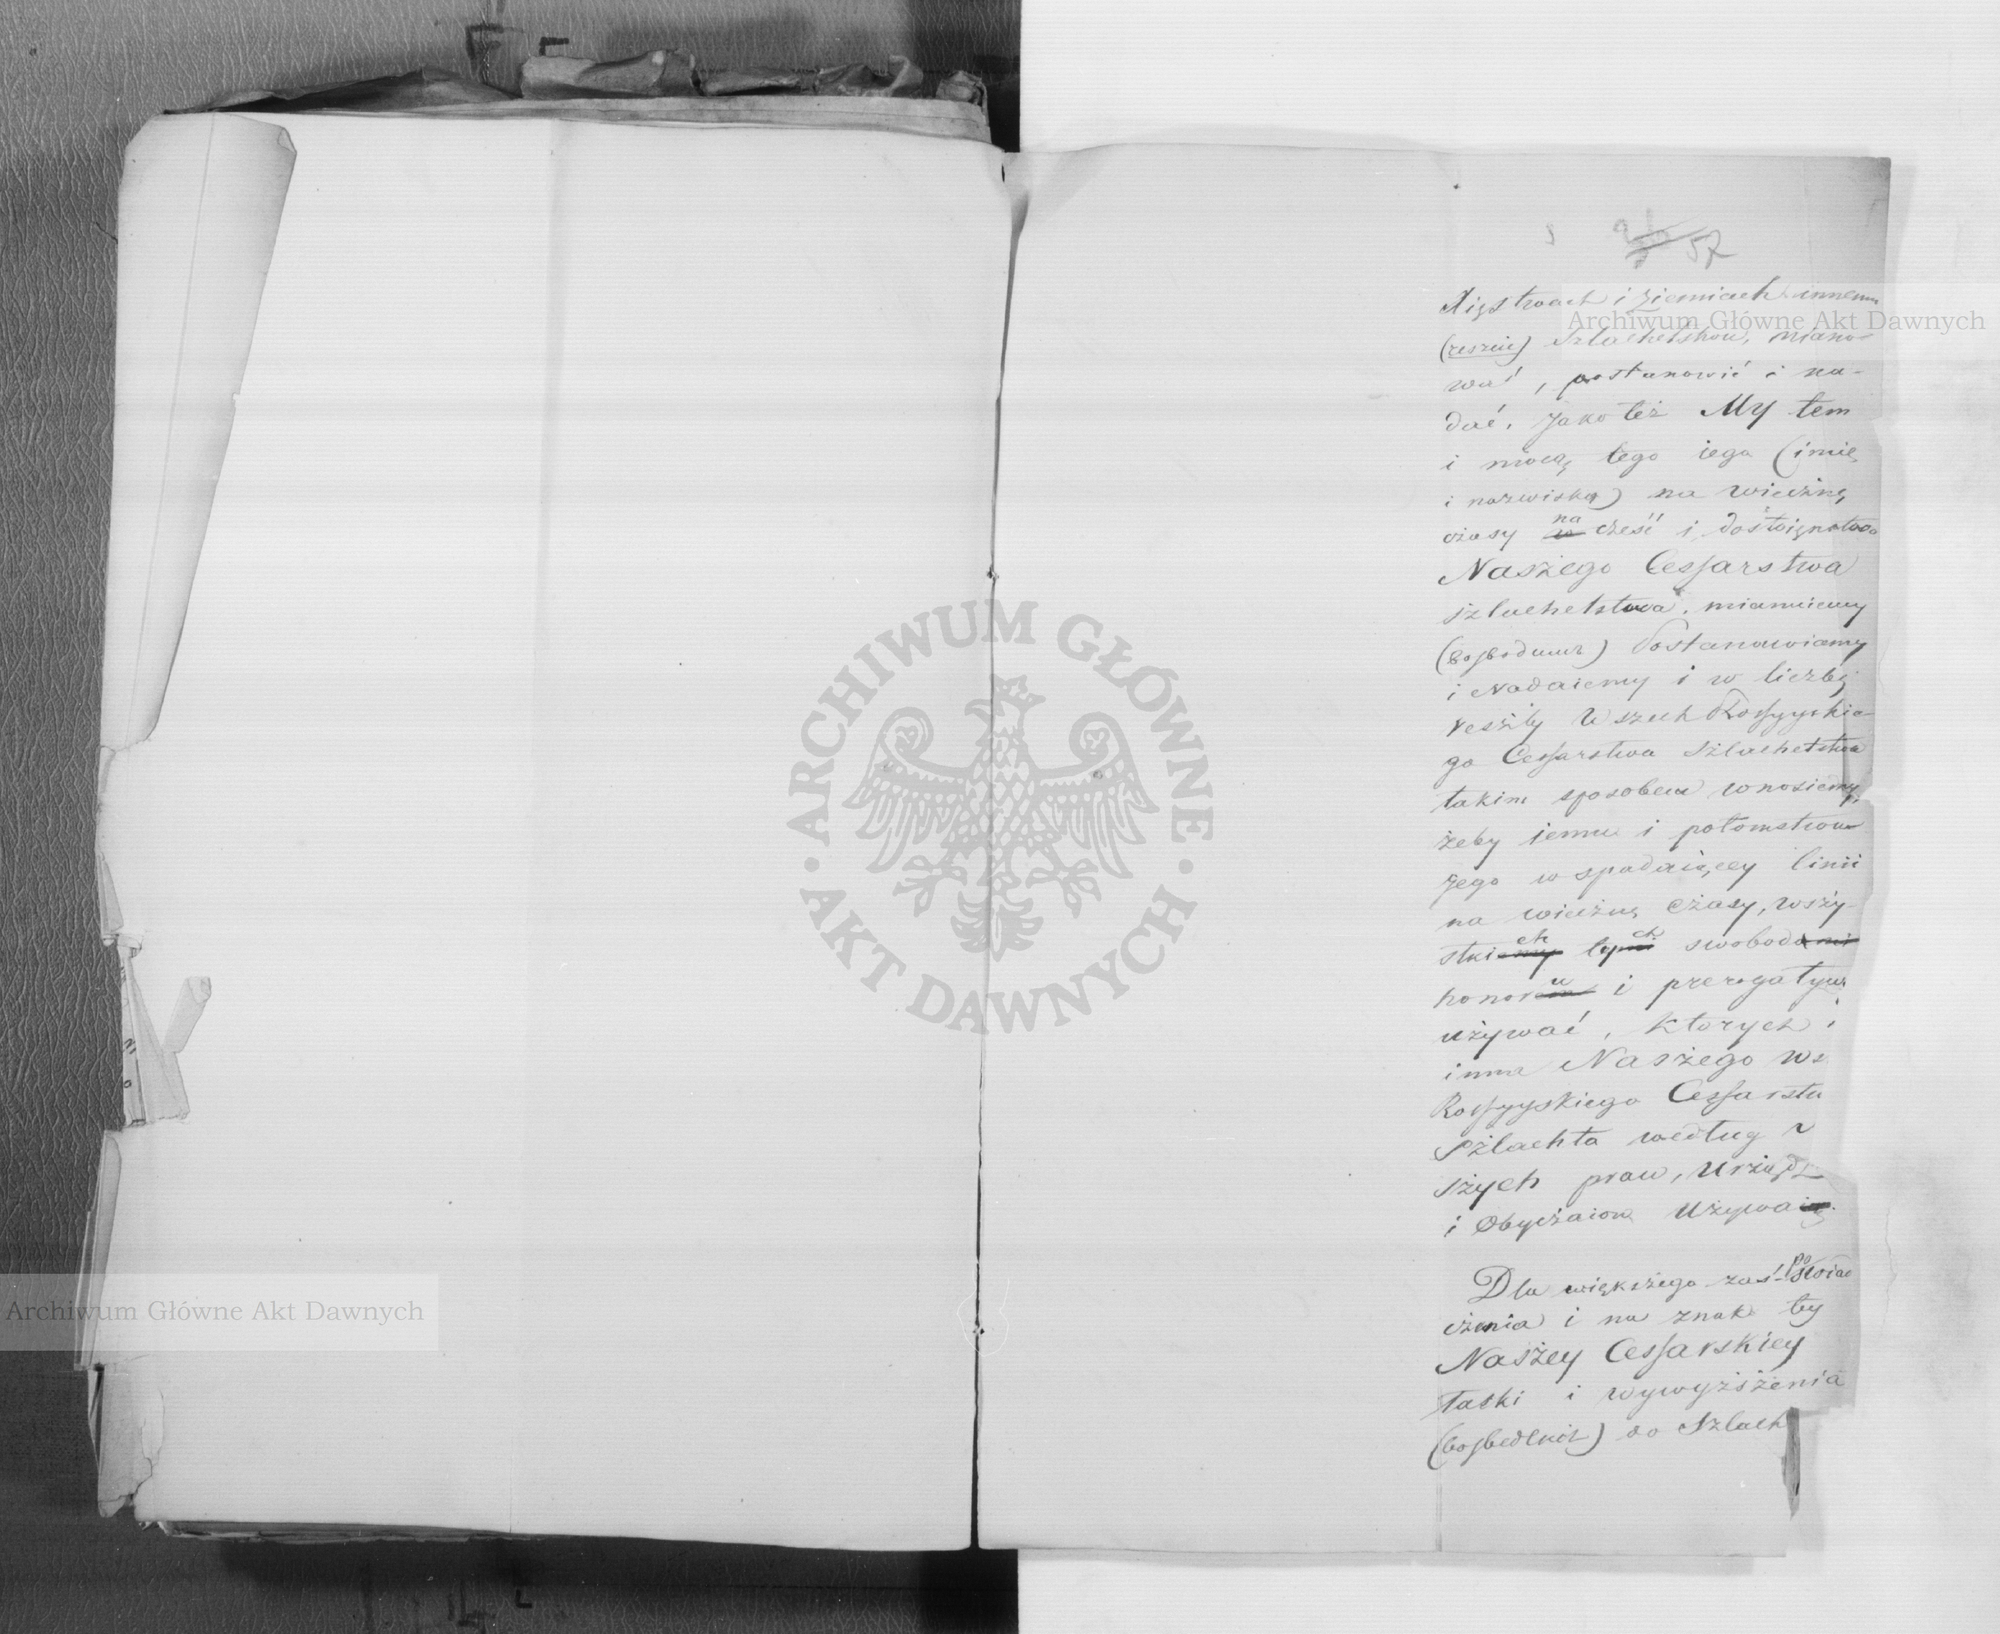 57
Xięstwach i ziemiach innemu
(reszcie) Szlachetstwu, miano-
wać, postanowić i na-
dać, Jako też My tem
i mocą tego iego (imię
i nazwisko) na wieczne
czasy na cześć i dostoięnstwo
Naszego Cessarstwa
szlachetstwa. mianuiemy
Postanawiamy
i Nadaiemy i w liczbę
reszty Wszech Rossyyskie-
go Cessarstwa szlachetstwa
takim sposobem wnosiemy,
żeby iemu i potomstwu
Jego w spadaiącey linii
na wieczne czasy, wszy-
stkich tych swobod
honorow i prerogatyw
używać, ktorych i
inna Naszego ws
Rossyyskiego Cessarstw
Szlachta według
szych praw, Urząd
i Obyczaiow Używa
Dla większego zaś poświad
czenia i na znak tey
Naszey Cessarskiey
łaski i wywyższenia
do Szlach
ARCHIWUM GŁÓWNE
AKT DAWNYCH
Archiwum Główne Akt Dawnych
Archiwum Główne Akt Dawnych